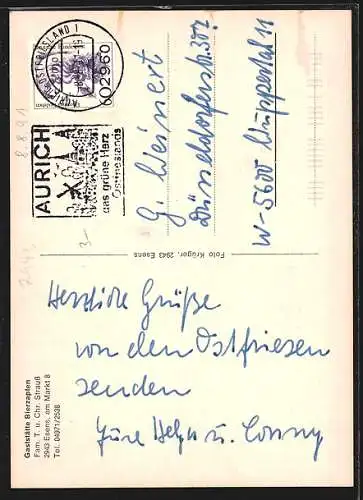 AURICH, OSTFRIESLAND 1
602960
AURICH
das grüne Herz
Ostfrieslands
8.8.91
3-
2943
G. Weinert
Düsseldorferstr. 302
W-5600 Wuppertal 11
Foto Krüger, 2943 Esens
Herzliche Grüße
von den Ostfriesen
senden
Eure Helga u. Conny
Gaststätte Bierzapfen
Fam. T. u. Chr. Strauß
2943 Esens, am Markt 8
Tel. 04971/2538